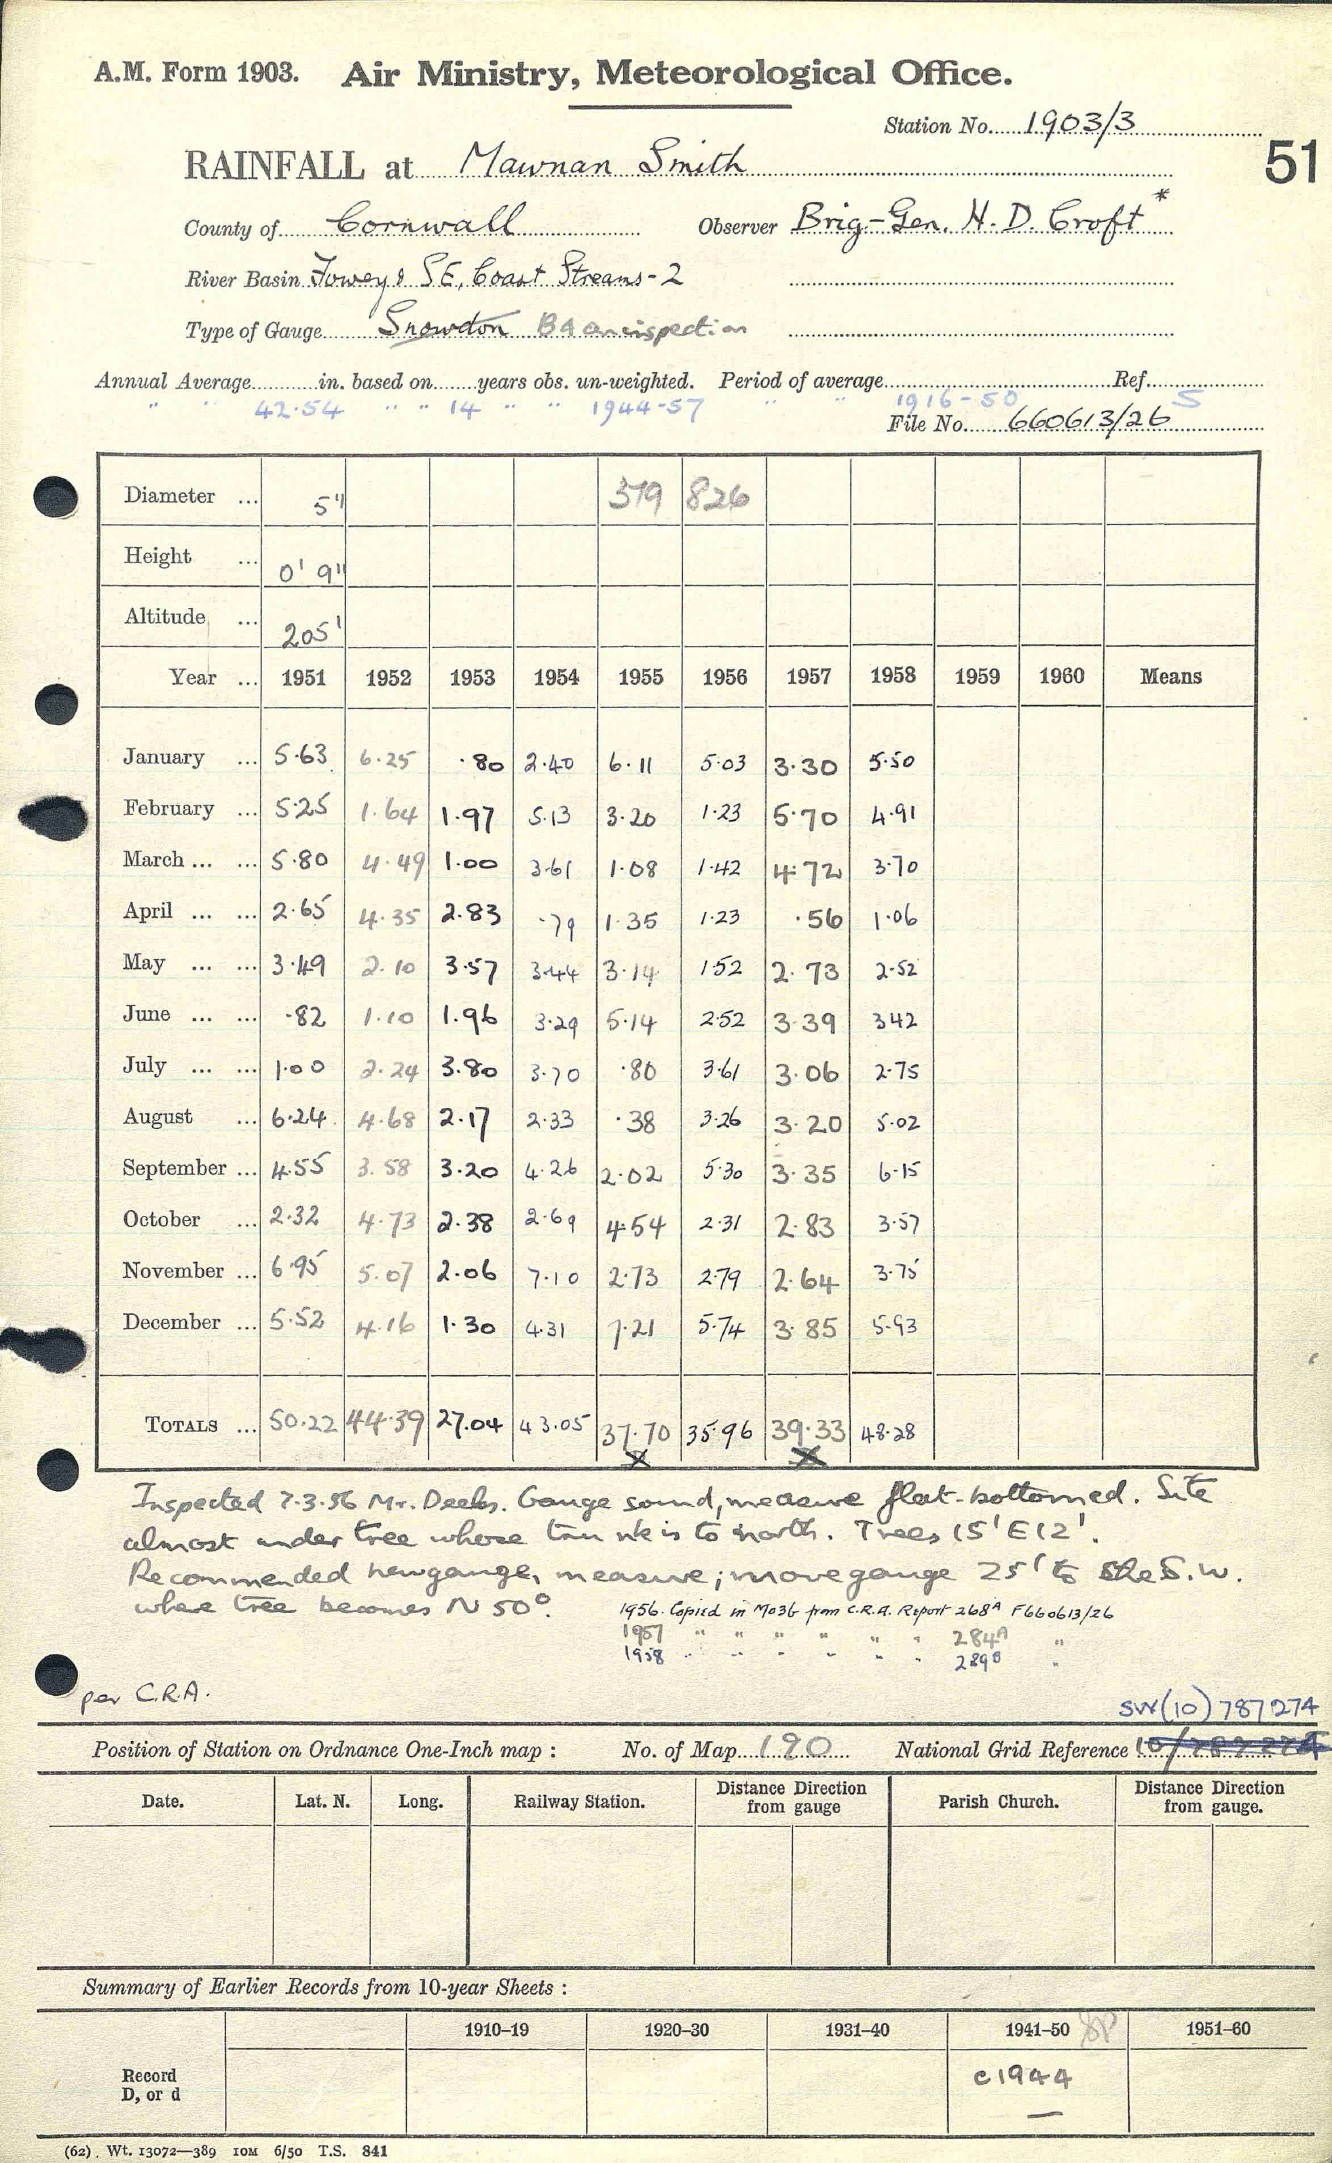 A.M. Form 1903. Air Ministry, Meteorological Office.
Station No. 1903/3
51
RAINFALL at Mawnan Smith
County of Cornwall Observer Brig-Gen. H. D. Croft *
River Basin Fowey & S.E. Coast Streams - 2
Type of Gauge Snowdon B4 on inspection
Annual Average in. based on years obs. un-weighted. Period of average Ref.
" " 42.54 " " 14 " " 1944-57 " " 1916-50 S
File No. 660613/26
Diameter ... 5" 379 826
Height ... 0' 9"
Altitude ... 205'
Year ... 1951 1952 1953 1954 1955 1956 1957 1958 1959 1960 Means
January ... 5.63 6.25 .80 2.40 6.11 5.03 3.30 5.50
February ... 5.25 1.64 1.97 5.13 3.20 1.23 5.70 4.91
March ... ... 5.80 4.49 1.00 3.61 1.08 1.42 4.72 3.70
April ... ... 2.65 4.35 2.83 .79 1.35 1.23 .56 1.06
May ... ... 3.49 2.10 3.57 3.44 3.14 1.52 2.73 2.52
June ... ... .82 1.10 1.96 3.29 5.14 2.52 3.39 3.42
July ... ... 1.00 2.24 3.80 3.70 .80 3.61 3.06 2.75
August ... 6.24 4.68 2.17 2.33 .38 3.26 3.20 5.02
September ... 4.55 3.58 3.20 4.26 2.02 5.30 3.35 6.15
October ... 2.32 4.73 2.38 2.69 4.54 2.31 2.83 3.57
November ... 6.95 5.07 2.06 7.10 2.73 2.79 2.64 3.75
December ... 5.52 4.16 1.30 4.31 7.21 5.74 3.85 5.93
TOTALS ... 50.22 44.39 27.04 43.05 37.70 35.96 39.33 48.28
Inspected 7.3.56 Mr. Deeks. Gauge sound, measure flat-bottomed. Site
almost under tree whose trunk is to north. Trees 15' E 12'.
Recommended new gauge, measure; move gauge 25' to the S.W.
where tree becomes N 50°.
1956. Copied in Mo3b from C.R.A. Report 268A F660613/26
1957 " " " " " " 284A "
1958 " " " " " " 289B "
per C.R.A.
SW(10) 787274
Position of Station on Ordnance One-Inch map : No. of Map 190 National Grid Reference 10/787274
Date. Lat. N. Long. Railway Station. Distance Direction from gauge Parish Church. Distance Direction from gauge.
Summary of Earlier Records from 10-year Sheets :
1910–19 1920–30 1931–40 1941–50 1951–60
Record
D, or d
c1944
(62). Wt. 13072—389 10M 6/50 T.S. 841